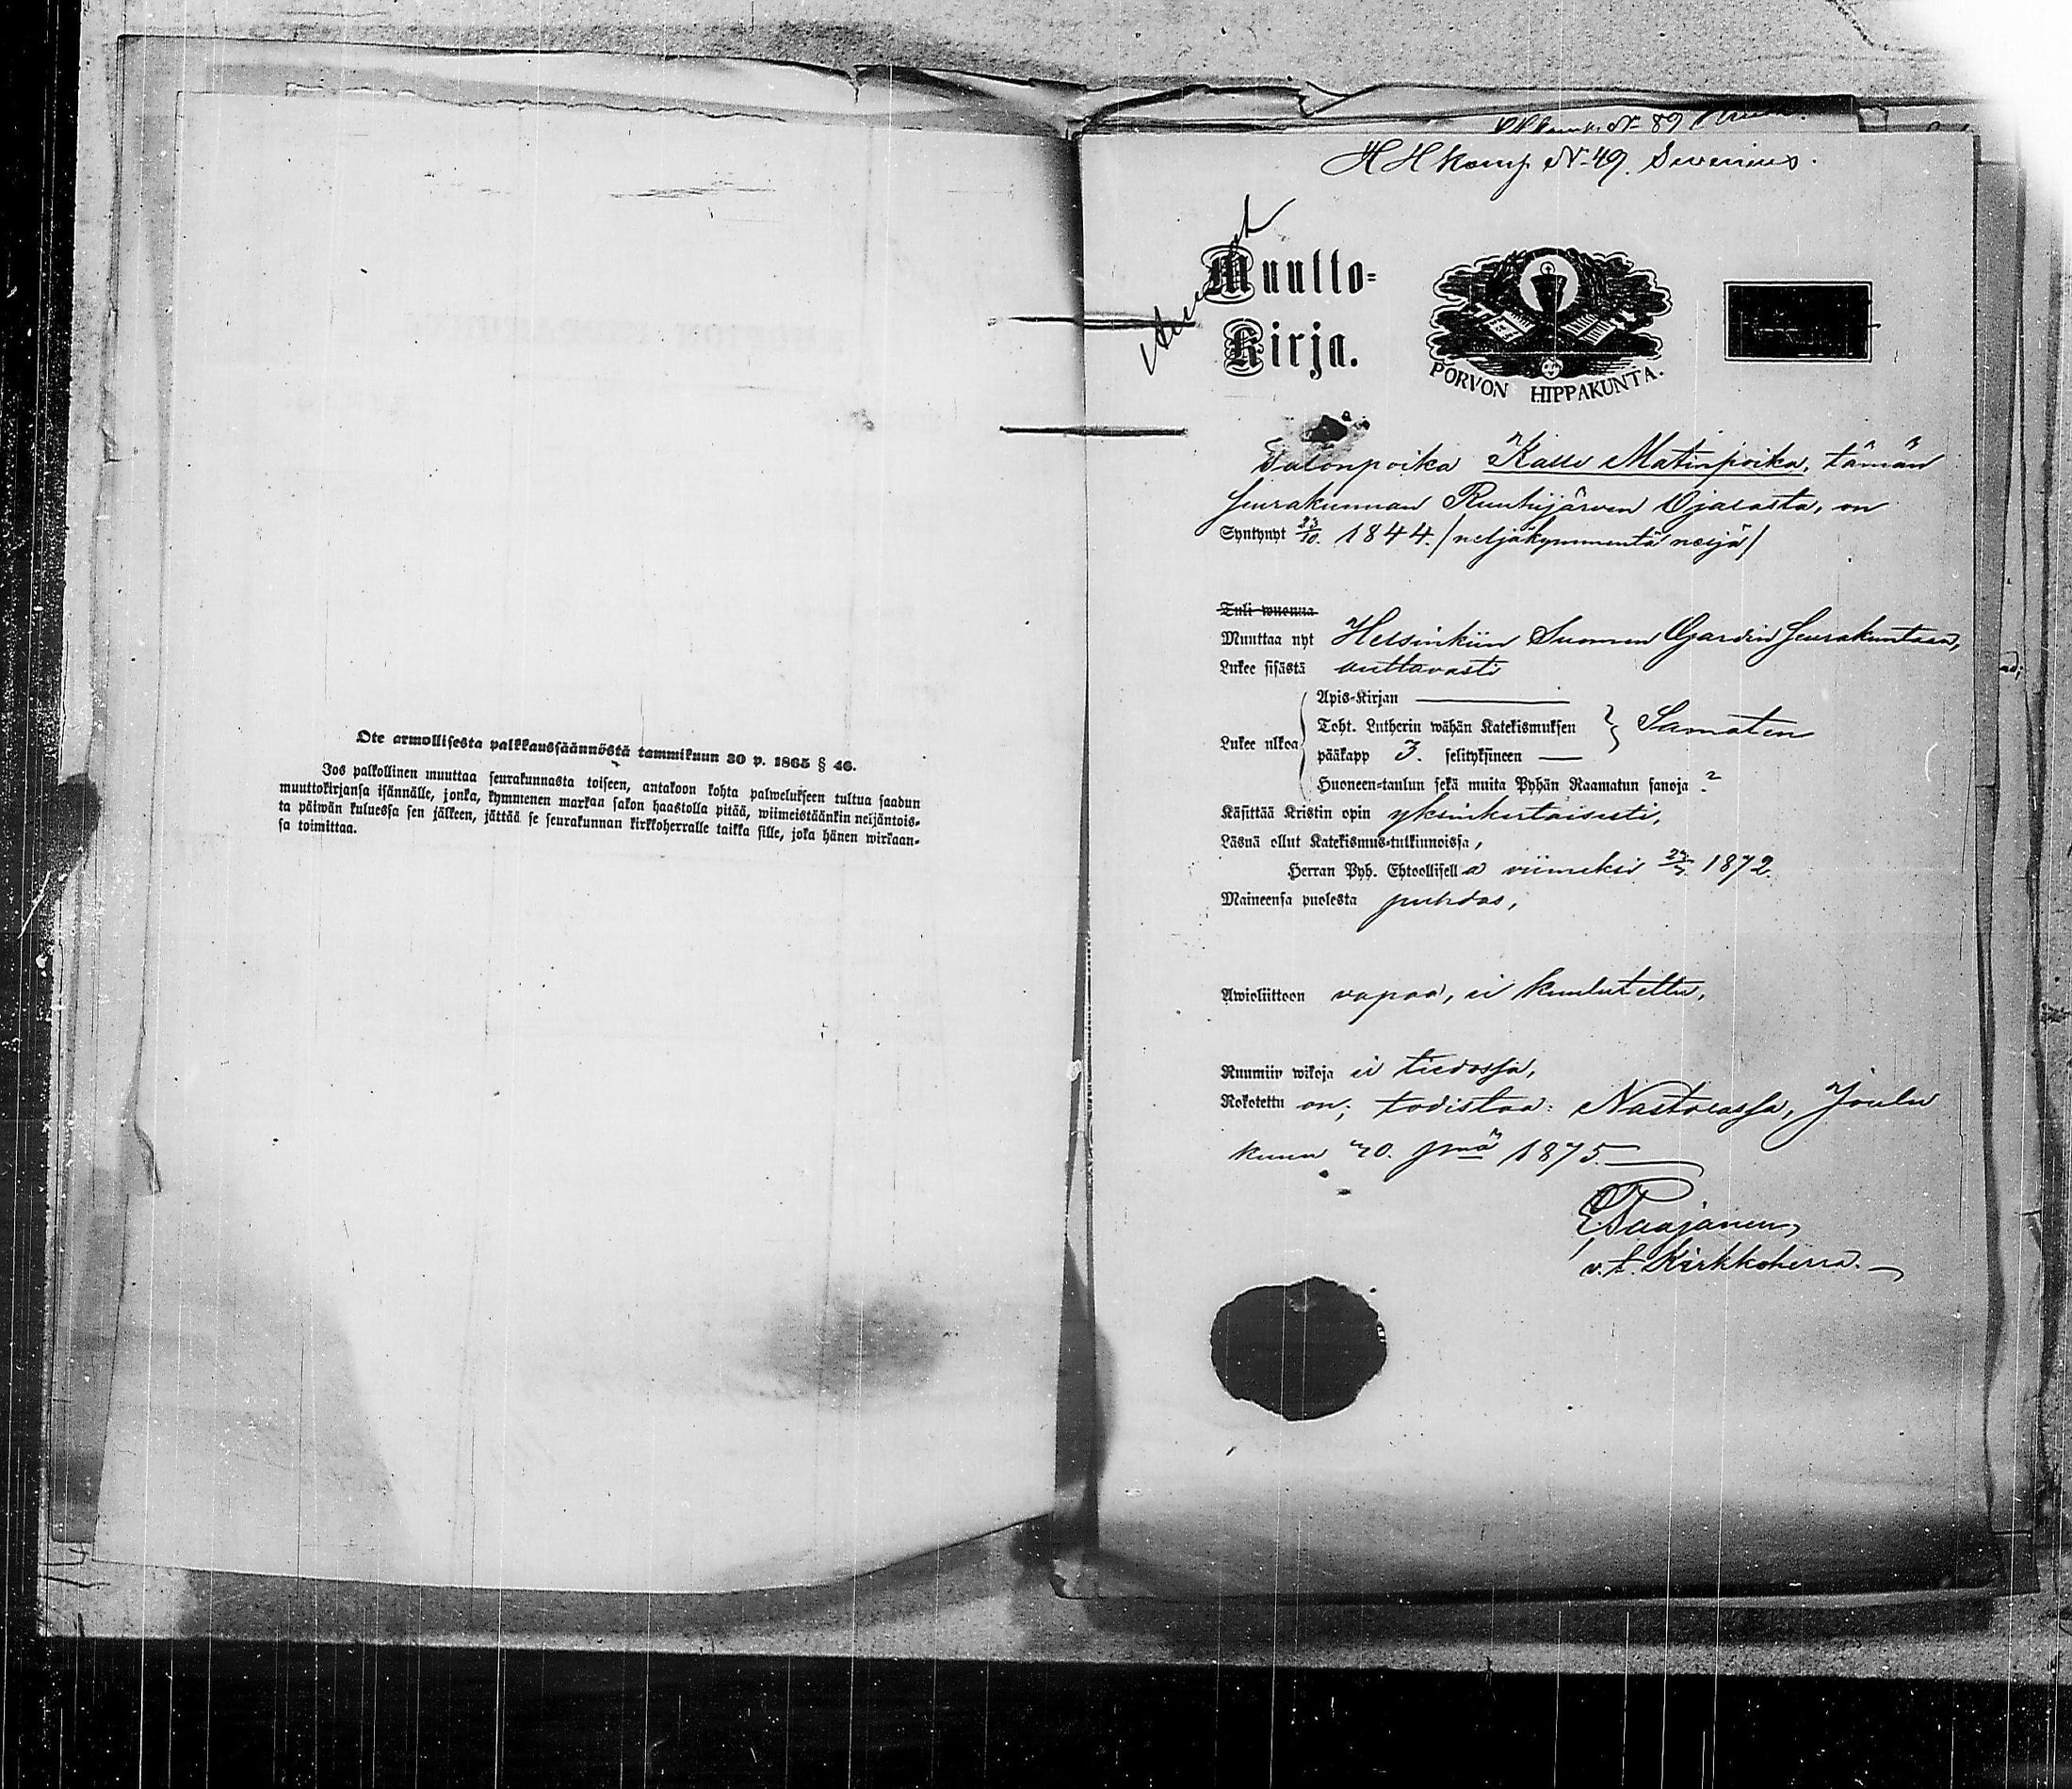 Ote armollisesta palkkaussäännöstä tammikuun 30 p. 1865 § 46.
Jos palkollinen muuttaa seurakunnasta toiseen, antakoon kohta palwelukseen tultua saadun
muuttokirjansa isännälle, jonka, kymmenen markan sakon haastolla pitää, wiimeistäänkin neljäntois-
ta päiwän kuluessa sen jälkeen, jättää se seurakunnan kirkkoherralle taikka sille, joka hänen wirkaan-
sa toimittaa.
N 89
HH komp. N 49. Severinus.
Muutto-
Kirja.
PORVON HIPPAKUNTA.
Talonpoika Kalle Matinpoika, tämän
seurakunnan Ruuhijärven Ojalasta, on
Syntynyt 23/10. 1844. /neljäkymmentä neljä/
Tuli wuonna
Muuttaa nyt Helsinkiin Suomen Gardin Seurakuntaan,
Lukee sisästä auttavasti
Apis-Kirjan
Toht. Lutherin wähän Katekismuksen
Samaten
Lukee ulkoa
pääkapp 3. selityksineen —
Huoneen-taulun sekä muita Pyhän Raamatun sanoja ?
Käsittää Kristin opin yksinkertaisesti,
Läsnä ollut Katekismus-tutkinnoissa,
Herran Pyh. Ehtoollisella viimeksi 1872.
Maineensa puolesta puhdas,
Awioliittoon vapaa, ei kuulutettu,
Ruumiin wikoja ei tiedossa,
Rokotettu on; todistaa: Nastolassa, Joulu
kuun 20. pnä 1875.
E Paajanen,
v. t. Kirkkoherra.